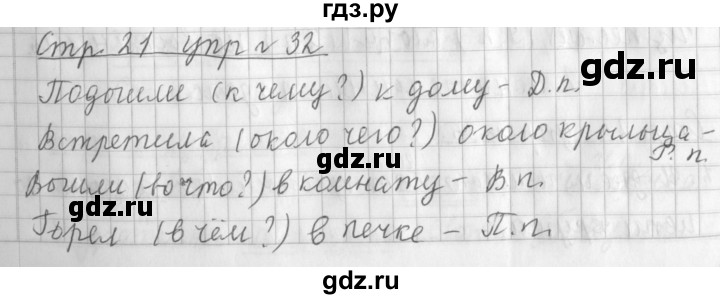 гдз.ру
Стр. 21 упр № 32
Подошли (к чему?) к дому – Д.п.
gdz.ru
Встретила (около чего?) около крыльца –
Р.п.
Вошли (во что?) в комнату – В п.
Горел (в чём?) в печке – П.п.
gdz.ru
gdz.ru